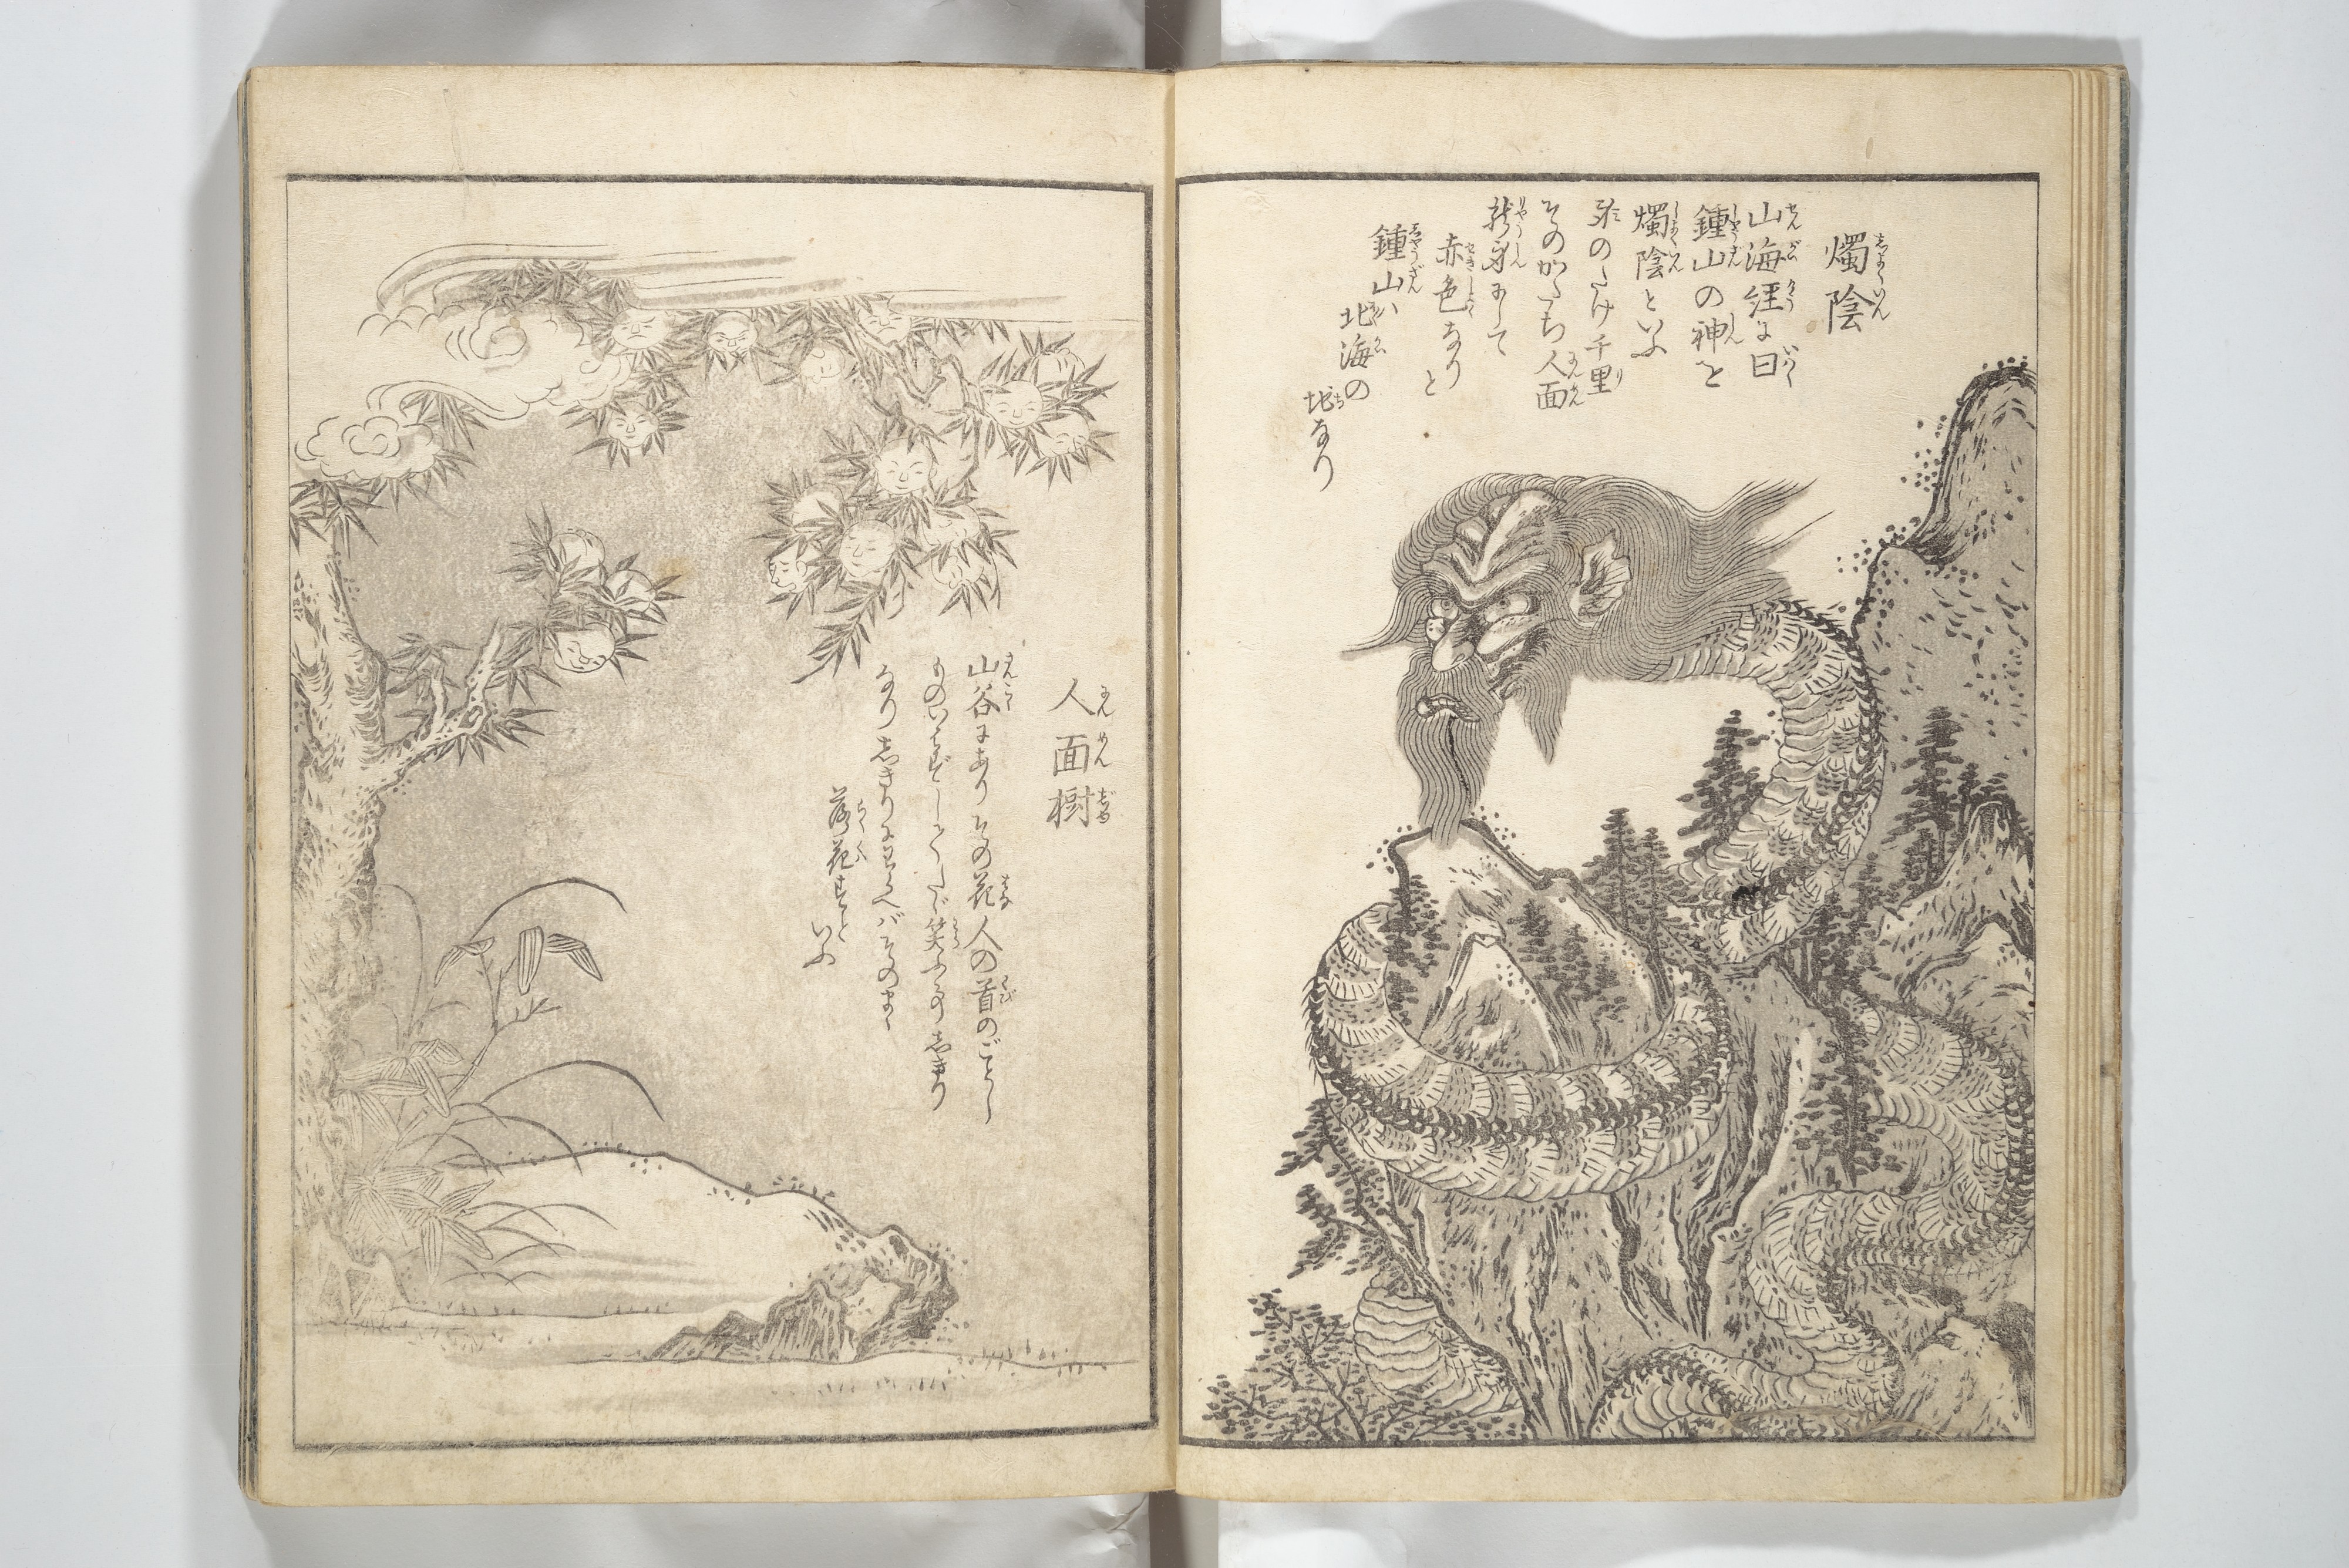 燭陰
山海経に曰
鍾山の神を
燭陰といふ
身のたけ千里
そのかたち人面
龍身にして
赤色なりと
鍾山は
北海の
地なり
人面樹
山谷にありその花人の首のごとし
ものいはずしてたゞ笑ふ事しきり
なりしきりにわらへばそのまゝ
落花すと
いふ